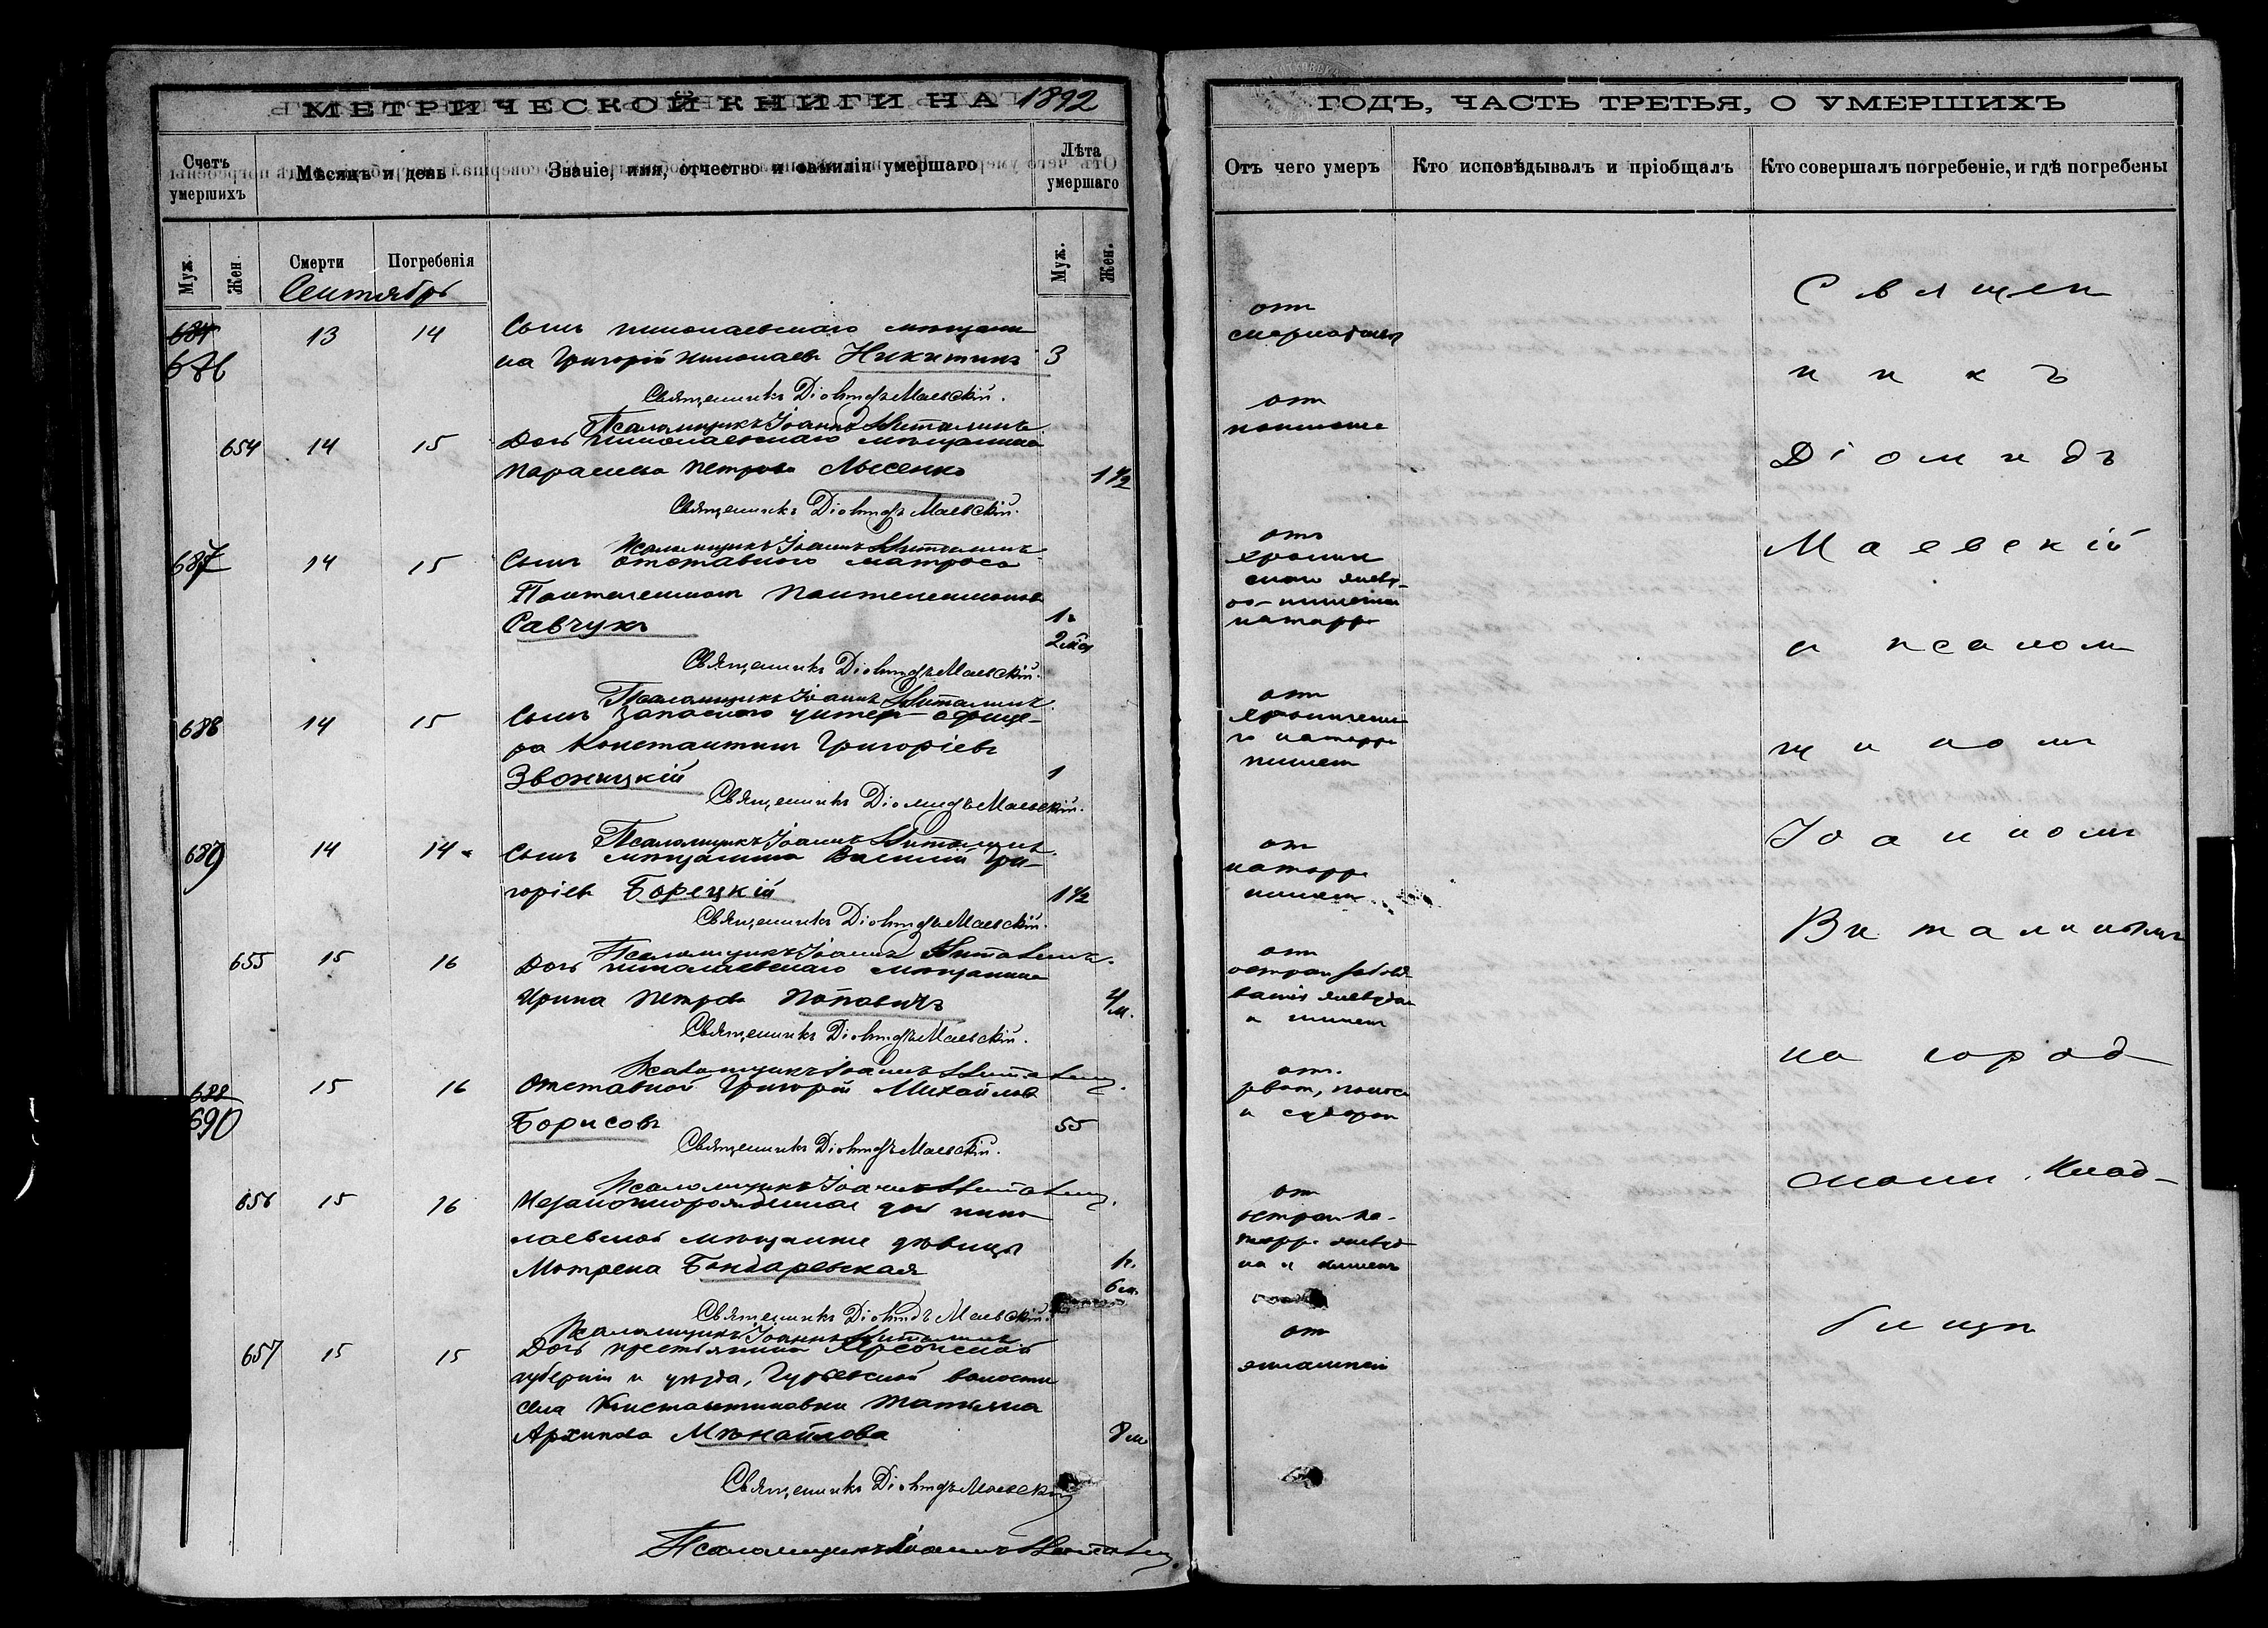 МЕТРИЧЕСКОЙ КНИГИ НА 1892
Счетъ умершихъ
Мѣсяцъ и день
Званіе, имя, отчество и фамилія умершаго
Лѣта умершаго
Муж.
Жен.
Смерти
Погребенія
Муж.
Жен.
Сентябрь
686 13 14 Сынъ николаевскаго мѣщани
на Григорій Николаевъ Никитинъ 3
Священникъ Діомидъ Маевскій.
Псаломщикъ Іоаннъ Виталинъ
654 14 15 Дочь николаевскаго мѣщанина
Параскева Петрова Лысенко 1 1/2
Священникъ Діомидъ Маевскій.
Псаломщикъ Іоаннъ Виталинъ
687 14 15 Сынъ отставного матроса
Пантелеимонъ Пантелеимоновъ
Савчукъ 1 г. 2 мѣс
Священникъ Діомидъ Маевскій.
Псаломщикъ Іоаннъ Виталинъ.
688 14 15 Сынъ запаснаго унтеръ-офице-
ра Константинъ Григоріевъ
Звоницкій 1
Священникъ Діомидъ Маевскій.
Псаломщикъ Іоаннъ Виталинъ.
689 14 14 Сынъ мѣщанина Василій Гри-
горіевъ Борецкій 1 1/2
Священникъ Діомидъ Маевскій.
Псаломщикъ Іоаннъ Виталинъ.
655 15 16 Дочь николаевскаго мѣщанина
Ирина Петрова Поповичъ 4 м.
Священникъ Діомидъ Маевскій.
Псаломщикъ Іоаннъ Виталинъ.
688
690 15 16 Отставной Григорій Михайловъ
Борисовъ 55
Священникъ Діомидъ Маевскій.
Псаломщикъ Іоаннъ Виталинъ.
656 15 16 Незаконнорожденная дочь нико
лаевской мѣщанки дѣвицы
Мотрена Бондаревская 1 г.
6 м.
Священникъ Діомидъ Маевскій.
Псаломщикъ Іоаннъ Виталинъ
657 15 15 Дочь крестьянина Херсонской
губерніи и уѣзда, Гурьевской волости
села Константиновки Татьяна
Архипова Михайлова 8 м
Священникъ Діомидъ Маевскій
Псаломщикъ Іоаннъ Виталинъ.
ГОДЪ, ЧАСТЬ ТРЕТЬЯ, О УМЕРШИХЪ
Отъ чего умеръ
Кто исповѣдывалъ и пріобщалъ
Кто совершалъ погребеніе, и гдѣ погребены
отъ
скарлатины
отъ
поноса
отъ
хрониче
скаго желуд-
оч-кишечн
катарра
отъ
хроническа
го катарра
кишекъ
отъ
катарра
кишекъ
отъ
остраго заболѣ
ванія желудка
и кишекъ
отъ
рвоты, поноса
и судорогъ
отъ
остраго ка-
тарра желуд
ка и кишекъ
отъ
эклампсіи
Священ
никъ
Діомидъ
Маевскій
и псалом
щикомъ
Іоанномъ
Виталинымъ
на город
скомъ клад-
бищѣ